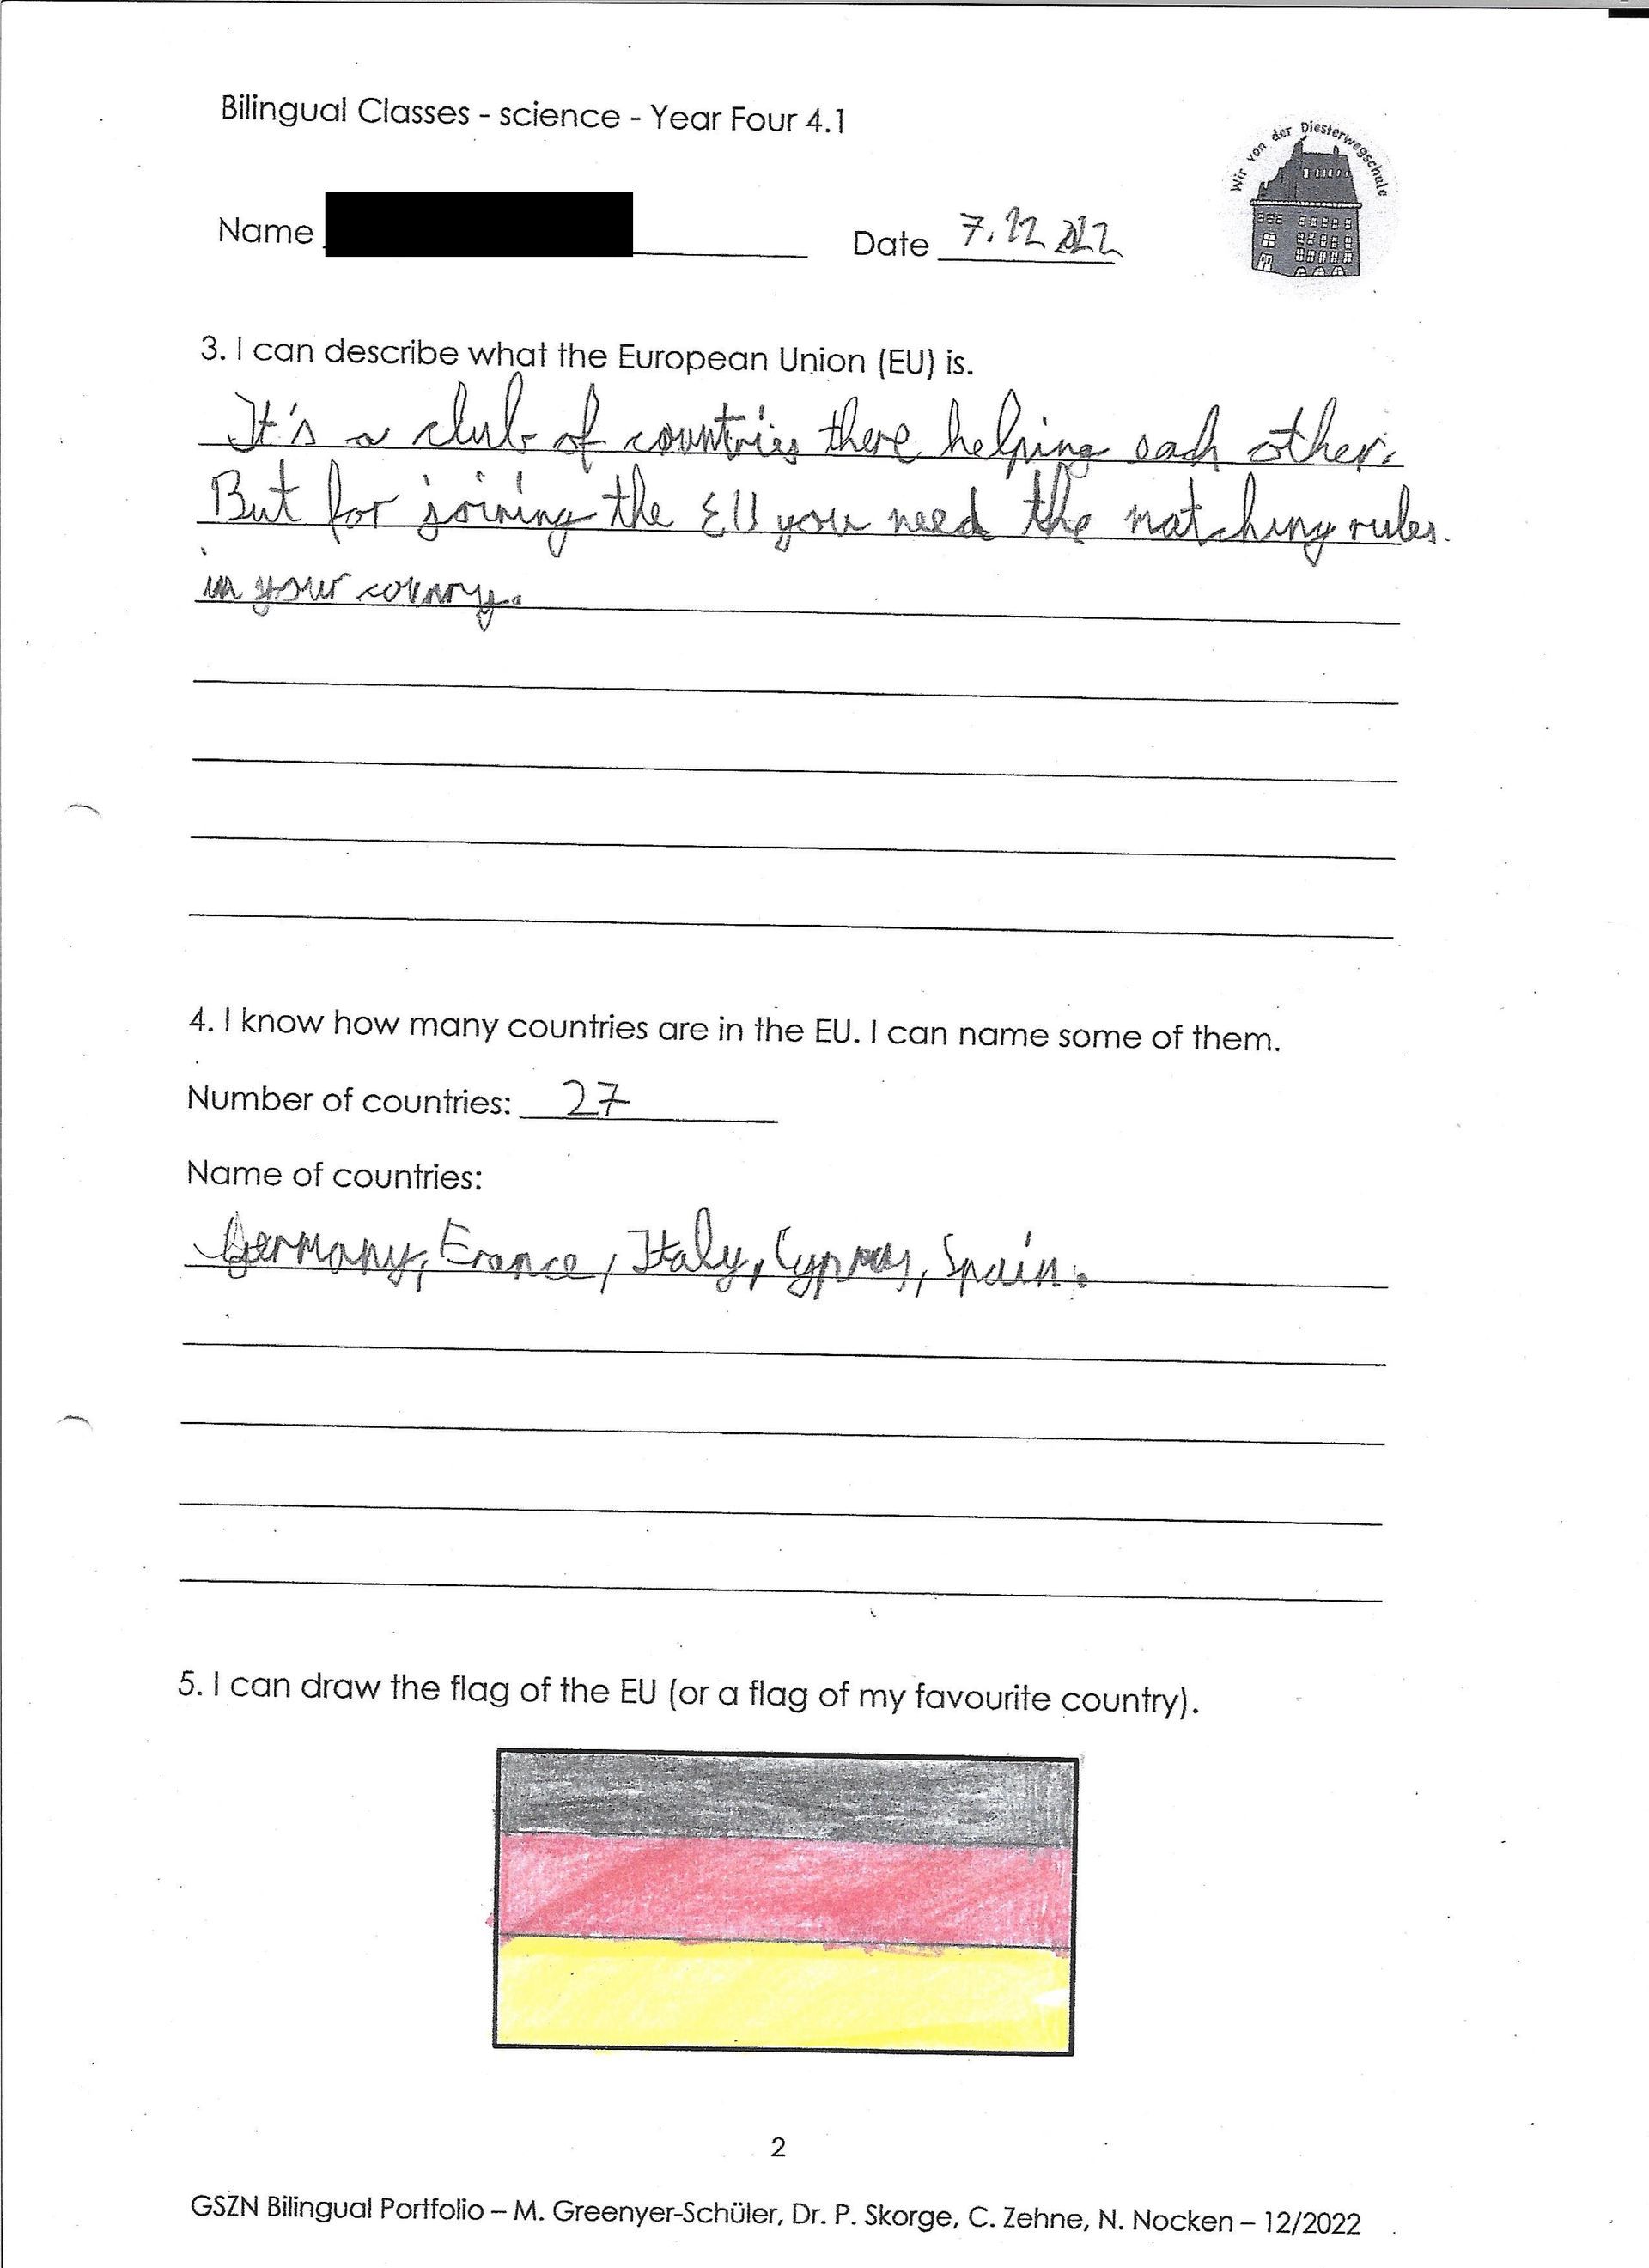 Bilingual Classes - science - Year Four 4.1
Wir von der Diesterwegschule
Name
Date 7.12.2022
3. I can describe what the European Union (EU) is.
It's a club of countries there helping each other.
But for joining the EU you need the matching rules.
in your conny.
4. I know how many countries are in the EU. I can name some of them.
Number of countries: 27
Name of countries:
Germany, France, Italy, Cyprus, Spain.
5. I can draw the flag of the EU (or a flag of my favourite country).
2
GSZN Bilingual Portfolio – M. Greenyer-Schüler, Dr. P. Skorge, C. Zehne, N. Nocken – 12/2022